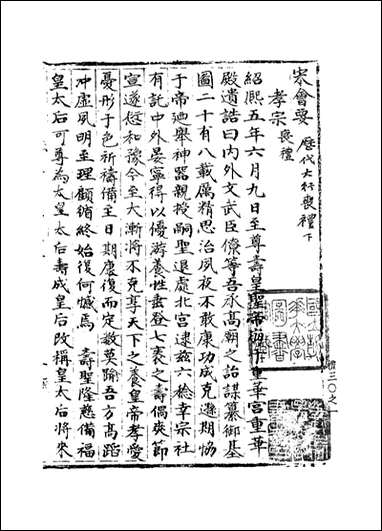 宋會要 歷代大行喪禮下
孝宗喪禮
紹熙五年六月九日至尊壽皇聖帝崩于重華宮重華
殿遺誥曰內外文武臣僚等吾承高廟之詒謀纂御基
圖二十有八載厲精思治夙夜不敢康功成克遜期協
于帝迪舉神器親授嗣聖退處北宮逮茲六稔幸宗社
有託中外晏寧得以優游養性登七袠之壽偶爽節
宣遂愆和豫今至大漸將不克享天下之養皇帝孝愛
憂形于色祈禱備至日期康復而定數莫踰吾方高蹈
沖虛夙明至理顧循終始復何憾焉 壽聖隆慈備福
皇太后可尊為太皇太后壽成皇后改稱皇太后將來
禮三〇之一